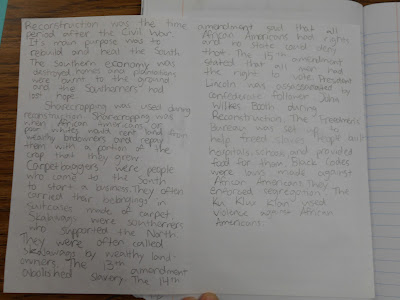 Reconstruction was the time
period after the Civil War.
It's main purpose was to
rebuild and heal the South.
The Southern economy was
destroyed, homes and plantations
were burnt to the ground
and the Southerners had
lost hope.
Sharecropping was used during
reconstruction. Sharecropping was
when African americans or
poor whites could rent land from
wealthy landowners and repay
them with a portion of the
crop that they grew.
Carpetbaggers were people
who came to the South
to start a business. They often
carried their belongings in
suitcases made of carpet.
Skalawags were southerners
who supported the North.
They were often called
skalawags by wealthy land-
owners. The 13th amendment
abolished slavery. The 14th
amendment said that all
African Americans had rights
and no state could deny
that. The 15th amendment
stated that all men had
the right to vote. President
Lincoln was assassinated by
confederate follower John
Wilkes Booth during
Reconstruction. The Freedmen's
bureau was set up to
help freed slaves. People built
hospitals, schools and provided
food for them. Black Codes
were laws made against
African Americans. They
enforced segregation. The
Ku Klux Klan used
violence against African
Americans.